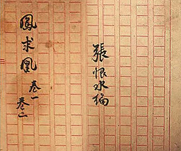 鳳求凰 卷一
卷二
張恨水編